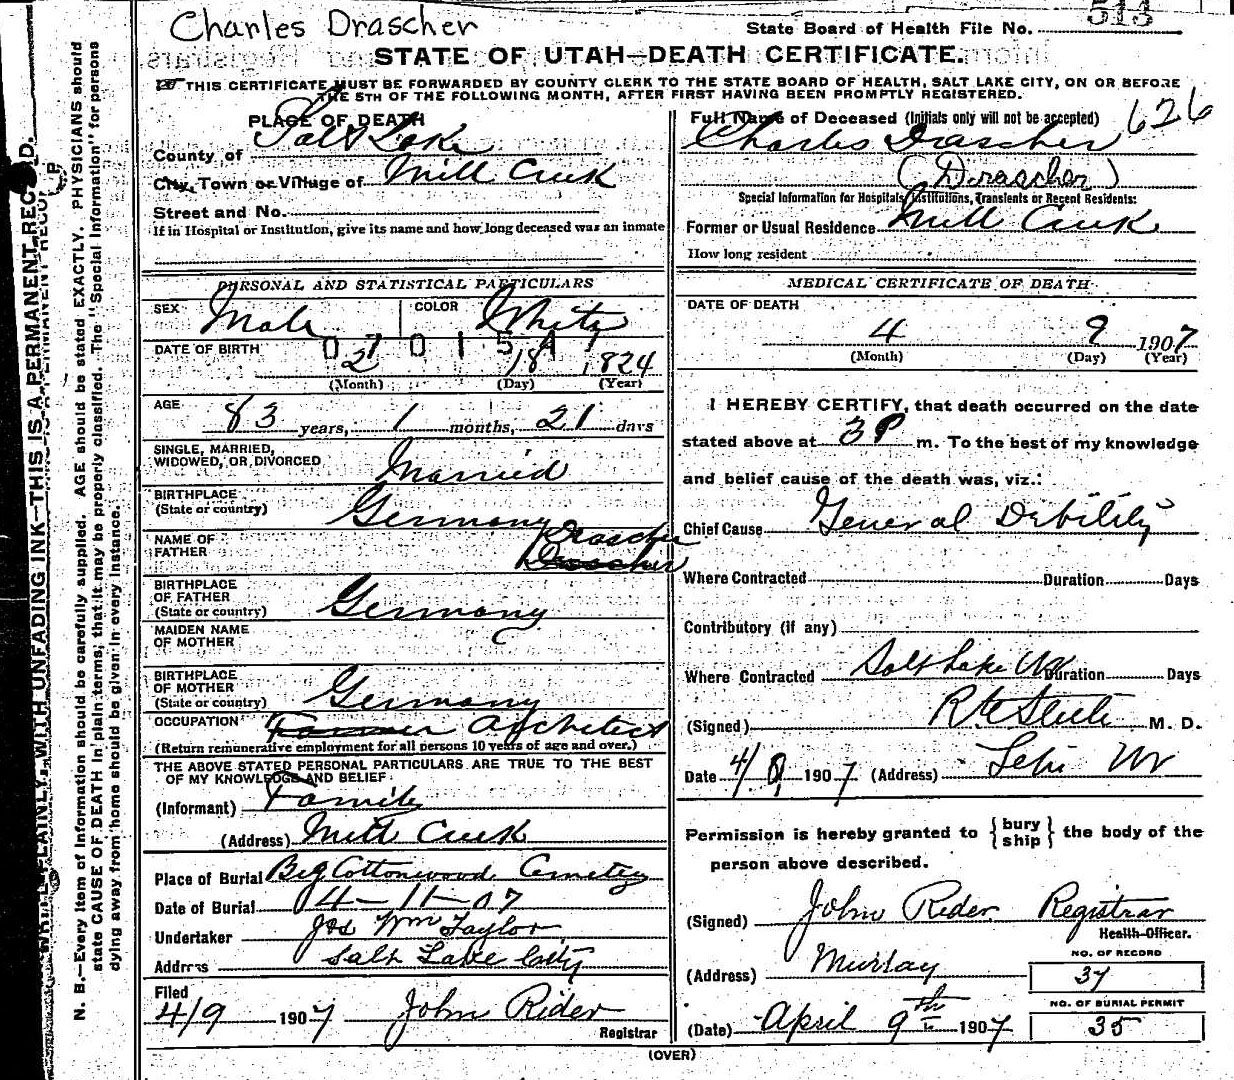 Charles Drascher
State Board of Health File No. 513
STATE OF UTAH—DEATH CERTIFICATE.
THIS CERTIFICATE MUST BE FORWARDED BY COUNTY CLERK TO THE STATE BOARD OF HEALTH, SALT LAKE CITY, ON OR BEFORE
THE 5TH OF THE FOLLOWING MONTH, AFTER FIRST HAVING BEEN PROMPTLY REGISTERED.
PLACE OF DEATH
County of Salt Lake
City, Town or Village of Mill Creek
Street and No.
If in Hospital or Institution, give its name and how long deceased was an inmate
Full Name of Deceased (Initials only will not be accepted) 626
Charles Drascher
(Drascher)
Special Information for Hospitals, Institutions, Transients or Recent Residents:
Former or Usual Residence Mill Creek
How long resident
PERSONAL AND STATISTICAL PARTICULARS
SEX Male COLOR White
DATE OF BIRTH 2 18 1824
(Month) (Day) (Year)
AGE 83 years, 1 months, 21 days
SINGLE, MARRIED,
WIDOWED, OR DIVORCED Married
BIRTHPLACE
(State or country) Germany
NAME OF
FATHER Drascher
BIRTHPLACE
OF FATHER
(State or country) Germany
MAIDEN NAME
OF MOTHER
BIRTHPLACE
OF MOTHER
(State or country) Germany
OCCUPATION Farmer Architect
(Return remunerative employment for all persons 10 years of age and over.)
THE ABOVE STATED PERSONAL PARTICULARS ARE TRUE TO THE BEST
OF MY KNOWLEDGE AND BELIEF
(Informant) Family
(Address) Mill Creek
Place of Burial Big Cottonwood Cemetey
Date of Burial 4-11-07
Undertaker Jos Wm Taylor
Address Salt Lake City
Filed
4/9 1907 John Rider
Registrar
MEDICAL CERTIFICATE OF DEATH
DATE OF DEATH
4 9 1907
(Month) (Day) (Year)
I HEREBY CERTIFY, that death occurred on the date
stated above at 3 P m. To the best of my knowledge
and belief cause of the death was, viz.:
Chief Cause General Debility
Where Contracted Duration Days
Contributory (if any)
Where Contracted Salt Lake Duration Days
(Signed) M. D.
Date 4/ 1907 (Address) Lehi
Permission is hereby granted to {bury ship} the body of the
person above described.
(Signed) John Rider Registrar
Health Officer.
(Address) Murray
NO. OF RECORD
37
(Date) April 9th 1907
NO. OF BURIAL PERMIT
35
(OVER)
WRITE PLAINLY, WITH UNFADING INK—THIS IS A PERMANENT RECORD.
N. B.—Every item of information should be carefully supplied. AGE should be stated EXACTLY. PHYSICIANS should
state CAUSE OF DEATH in plain terms, that it may be properly classified. The "Special Information" for persons
dying away from home should be given in every instance.